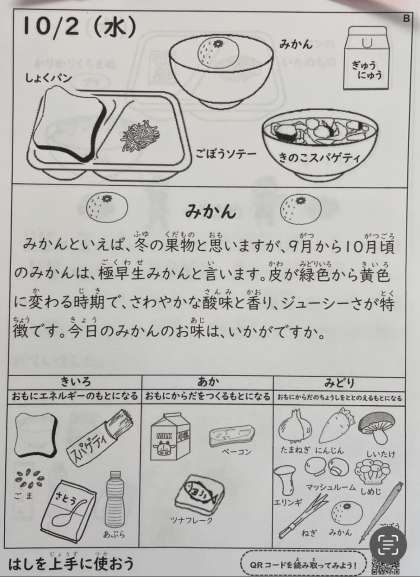 10/2（水）
B
みかん
ぎゅうにゅう
しょくパン
ごぼうソテー
きのこスパゲティ
みかん
みかんといえば、冬の果物と思いますが、9月から10月頃
のみかんは、極早生みかんと言います。皮が緑色から黄色
に変わる時期で、さわやかな酸味と香り、ジューシーさが特
徴です。今日のみかんのお味は、いかがですか。
きいろ
おもにエネルギーのもとになる
あか
おもにからだをつくるもとになる
みどり
おもにからだのちょうしをととのえるもとになる
スパゲティ
ごま
さとう
あぶら
ベーコン
ツナフレーク
たまねぎ
にんじん
しいたけ
エリンギ
マッシュルーム
しめじ
ねぎ
みかん
ごぼう
はしを上手に使おう
QRコードを読み取ってみよう！